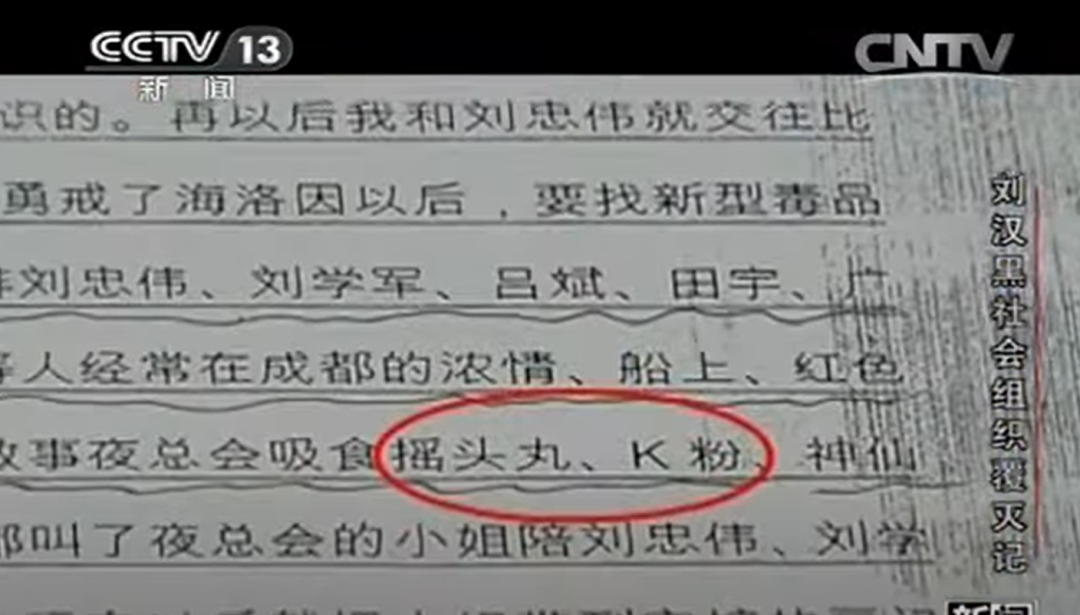 CCTV 13
新闻
CNTV
识的。再以后我和刘忠伟就交往比
勇戒了海洛因以后，要找新型毒品
刘忠伟、刘学军、吕斌、田宇、
等人经常在成都的浓情、船上、红色
故事夜总会吸食摇头丸、K 粉、神仙
都叫了夜总会的小姐陪刘忠伟、刘学
刘汉黑社会组织覆灭记
新闻